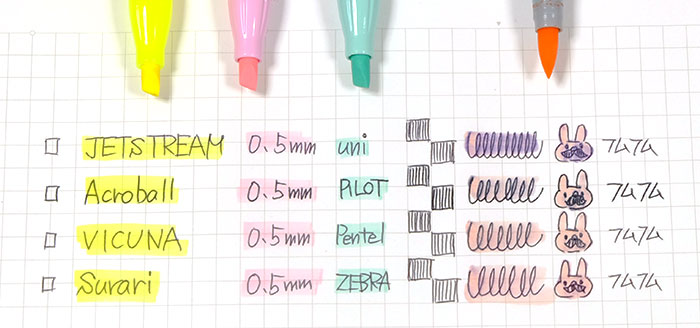 JETSTREAM 0.5mm uni フムフム
Acroball 0.5mm PILOT フムフム
VICUNA 0.5mm Pentel フムフム
Surari 0.5mm ZEBRA フムフム